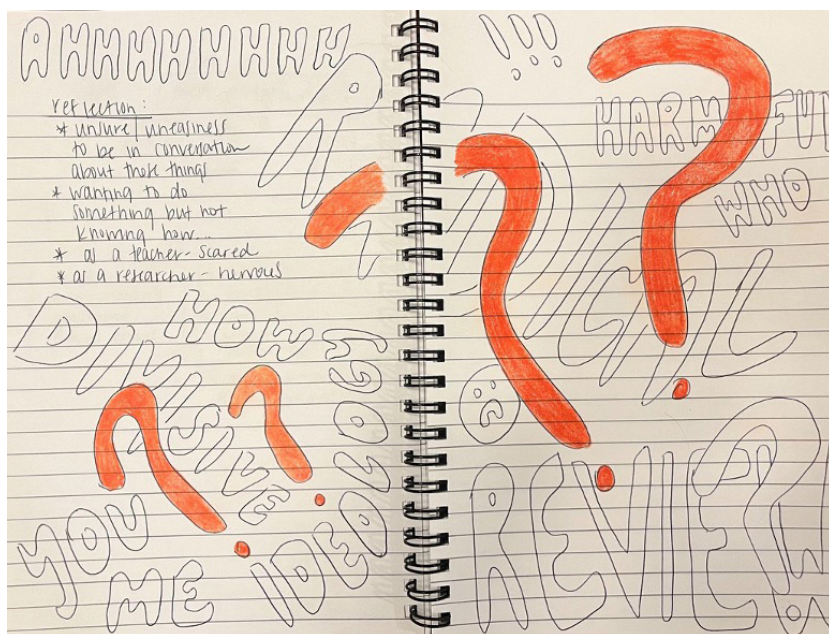 AHHHHHHHH
reflection:
* unsure/uneasiness
to be in conversation
about these things
* wanting to do
something but not
knowing how...
* as a teacher - scared
* as a researcher - nervous
RADICAL
DIVISIVE
HOW
YOU
ME
IDEOLOGY
!!!
HARMFUL
WHO
REVIEW
?
?
?
?
?